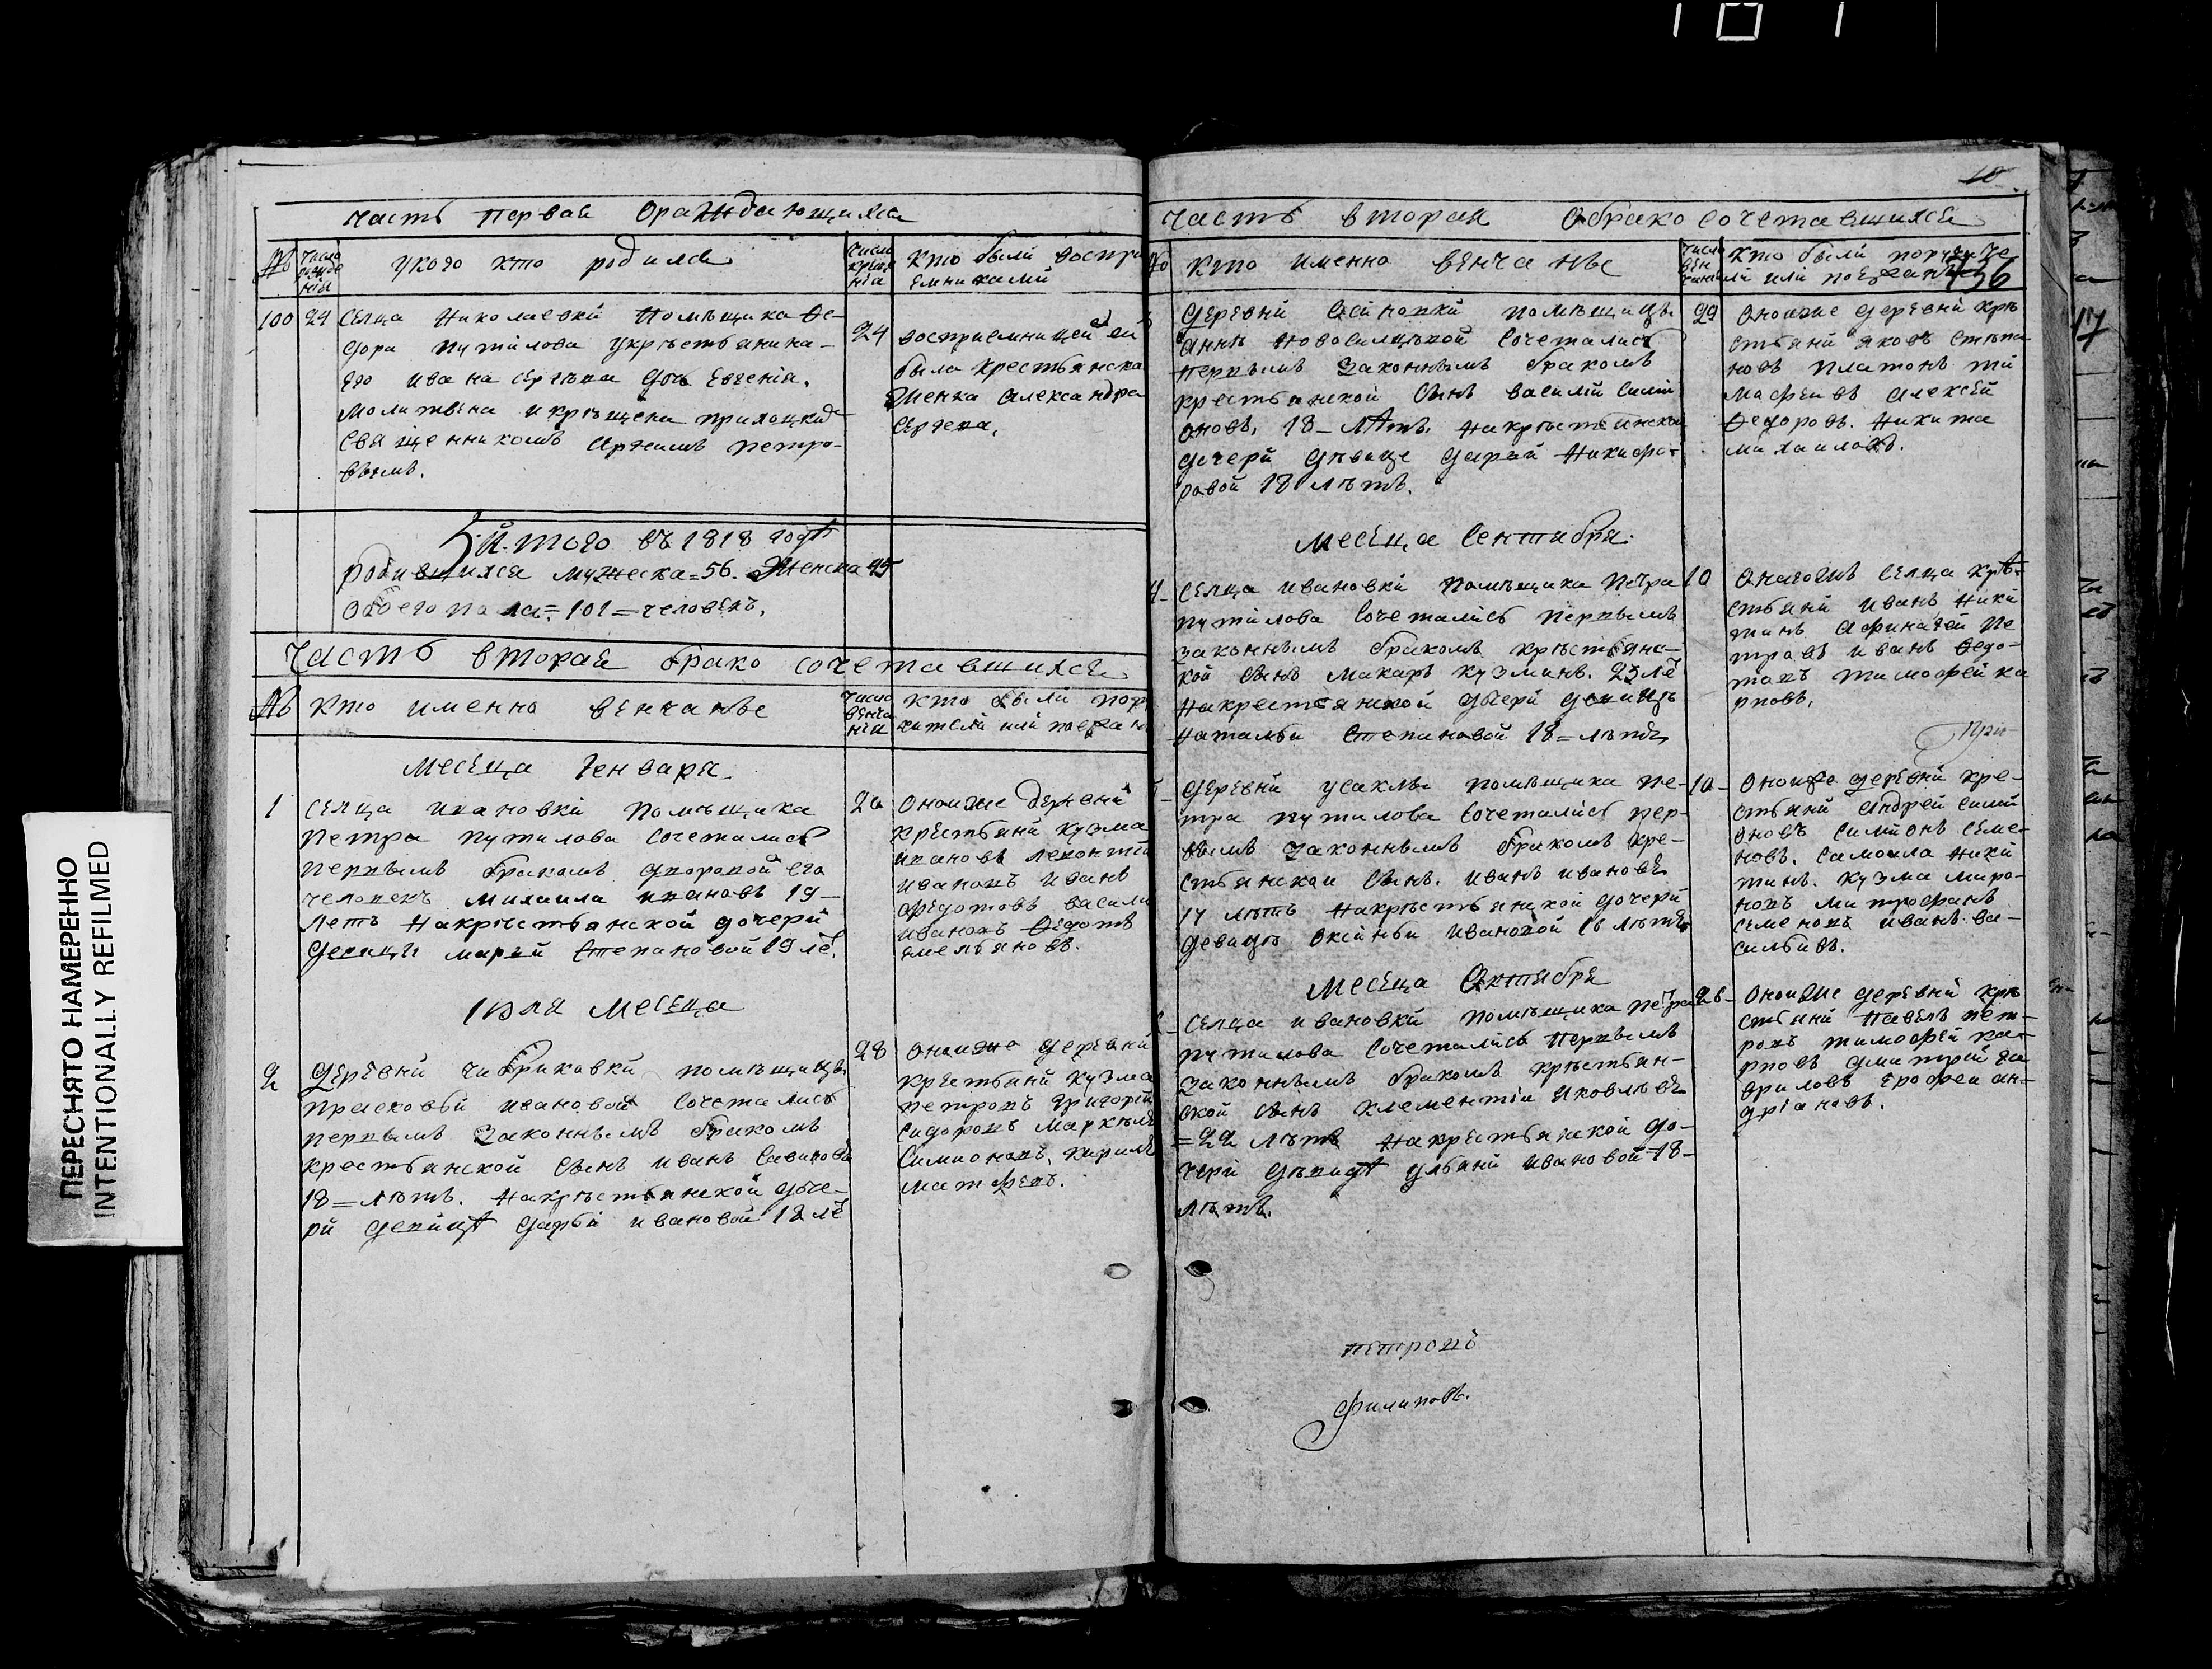 ПЕРЕСНЯТО НАМЕРЕННО
INTENTIONALLY REFILMED
часть первая ораждающихся
№
число рожде нія
укого кто родился
число креще нія
кто были воспри
емниками
100
24
селца Николаевки помѣщика Ѳе-
дора путилова укрѣстьянина
его ивана сергѣева дочь евгенія.
молитвена икрѣщена приходкимъ
священникомъ артемимъ петро-
вымъ.
24
восприемницей ей
была крестьянска
женка александра
сергева.
Итого въ 1818 годѣ
родившихся мужеска = 56. женска 45
обоего пола = 101 = человекъ.
часть вторая брако сочетавшихся
№
кто именно венчанъе
число венча нія
кто были пору
чители или поезжан
месеца генваря
1
селца ивановки помѣщика
петра путилова сочеталисъ
первымъ бракомъ дворовой его
человекъ михаила ивановъ 19-
летъ накрѣстьянской дочери
девицы марьи степановой 19 ле.
20
оноиже деревни
крестьяни кузма
ивановъ леонтій
ивановъ иванъ
федотовъ васили
ивановъ Ѳедотъ
емельяновъ.
іюля месеца
2
деревни чибриковки помѣщицы
прасковьи ивановой сочеталисъ
первымъ законнымъ бракомъ
крестьянской сынъ иванъ савиновъ
18 = лѣтъ. накрѣстьянской доче-
ри девицѣ дарьи ивановой 18 ле
28
оноиже деревни
крестьяни кузма
петровъ григорій
сидоровъ маркелъ
симионовъ, кирилъ
матфевъ.
часть вторая обрако сочетавшихся
10
№
кто именно венчанъе
число вен чания
кто были поручите
ли или поезжаня
736
деревни помѣщицы
анны новосилцовой сочеталисъ
первымъ законнымъ бракомъ
крестьянской сынъ василій сими
оновъ, 18 - лѣтъ. накрѣстьянской
дочери дѣвице дарьи никифо-
ровой 18 лѣтъ.
29
оноиже деревни крѣ
стьяни яковъ степа
новъ платонъ ти
мофеивъ алексей
Ѳедоровъ. никита
михаиловъ.
месеца сентября
4
селца ивановки помѣщика петра
путилова сочеталисъ первымъ
законнымъ бракомъ крѣстьянс-
кой сынъ макаръ кузминъ. 23 ле
накрестьянской дочери девицы
натальи степановой 18 = лѣтъ
10
онагожъ селца крѣ-
стьяни иванъ ники
тинъ афинагей пе
тровъ иванъ Ѳедо-
товъ тимофей ка
рповъ.
при-
5
деревни усаклы помѣщика пе-
тра путилова сочеталисъ пер-
вымъ законнымъ бракомъ кре-
стьянской сынъ. иванъ ивановъ
17 лѣтъ накрѣстьянской дочери
девицы оксиньи ивановой 16 лѣтъ
10
оноиже деревни кре-
стьяни андрей сими
оновъ симионъ семе-
новъ. самоила ники
тинъ. кузма миро-
новъ митрофанъ
семеновъ иванъ ва-
сильивъ.
месеца октября
6
селца ивановки помѣщика петра
путилова сочеталисъ первымъ
законнымъ бракомъ крѣстьян-
ской сынъ клементіи яковлевъ
= 22 лѣтъ накрестьянской до-
чери дѣвицѣ ульяни ивановой 18-
лѣтъ.
26
оноиже деревни крѣ
стьяни павелъ пет-
ровъ тимофей ка-
рповъ дмитрей га
вриловъ ерофеи ан-
дріановъ.
петровъ
филиповъ.